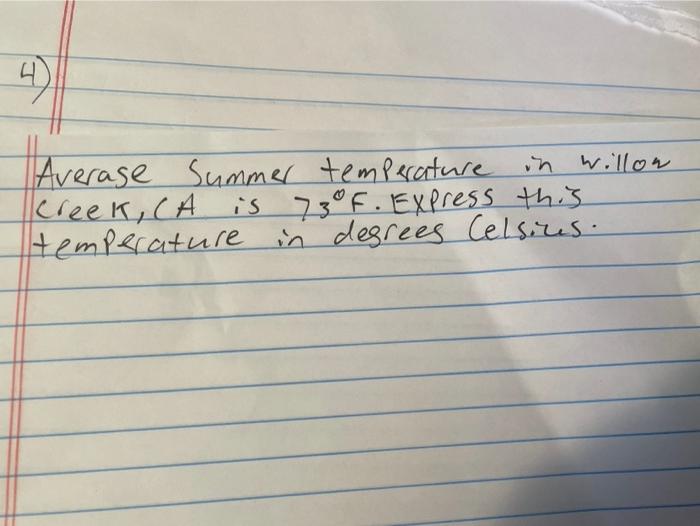 4)
Average Summer temperature in Willow
Creek, CA is 73°F. Express this
temperature in degrees Celsius.